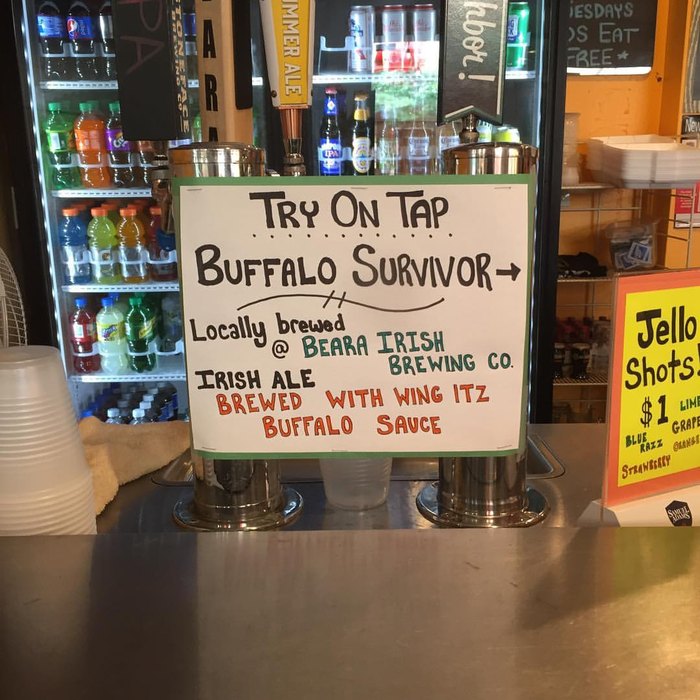 TRY ON TAP
BUFFALO SURVIVOR →
Locally brewed
@ BEARA IRISH
BREWING CO.
IRISH ALE
BREWED WITH WING ITZ
BUFFALO SAUCE
Jello
Shots!
$1
LIME
BLUE
RAZZ
GRAPE
STRAWBERRY
ORANGE
SAMUEL
ADAMS
MMER ALE
hbor!
ARA
PA
IPA
ESDAYS
S EAT
FREE*